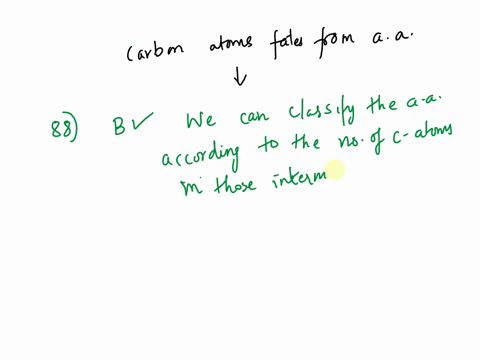 carbon atoms fates from a.a.
↓
88) B✓ We can classify the a.a.
according to the no. of c-atoms
in those interm